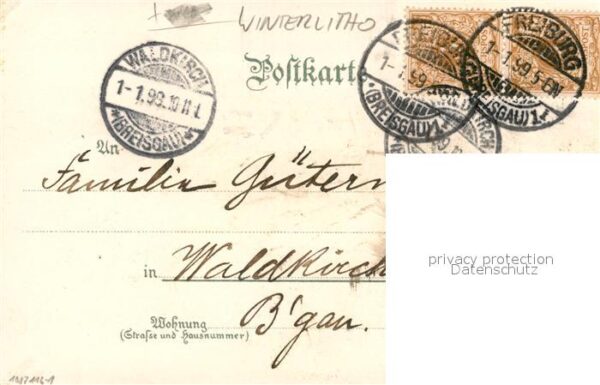 WINTERLITHO
Postkarte
WALDKIRCH
1-1.99.10 11-V.
(BREISGAU)
FREIBURG
1-1.99.
(BREISGAU) 1
FREIBURG
1-1.99 5-6N
(BREISGAU) 1
An
Familie Güterm
privacy protection
Datenschutz
in Waldkirch
Wohnung B'gau.
(Straße und Hausnummer)